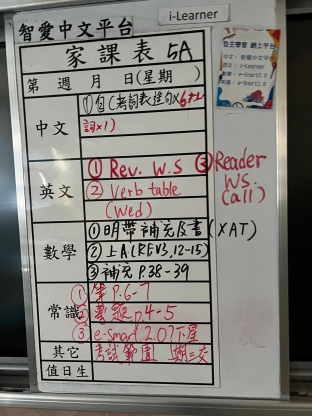 i-Learner
智愛中文平台
家課表 5A
第 週 月 日(星期 )
中文
①包(考詞表造句x6+1
詞x1)
英文
① Rev. W.S ③ Reader
② Verb table WS.
(Wed) (all)
數學
①明帶補充及書(XAT)
②上A(REV3,12-15)
③補充 P.38-39
常識
① 筆 P.6-7
② P.4-5
③ e-Smart 2.0
其它
考試範圍 期三交
值日生
自主學習 網上平台